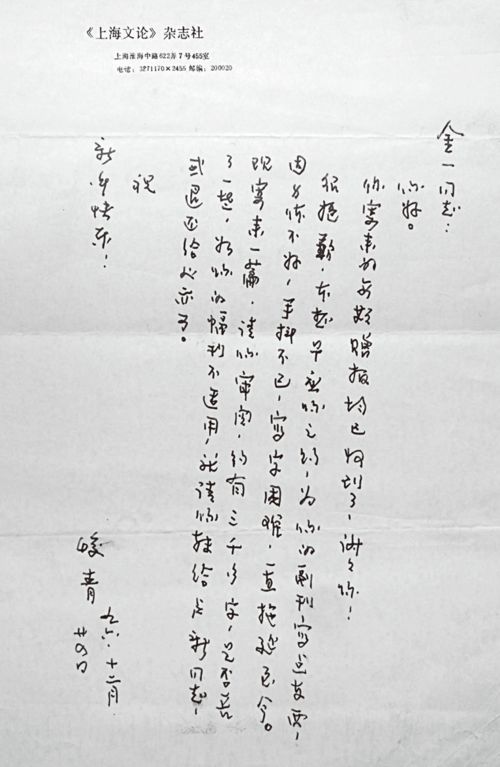 《上海文论》杂志社
上海淮海中路622弄7号455室
电话：3271170×2455 邮编：200020
金一同志：
你好。
你寄来的每期赠报均已收到了，谢々你！
很抱歉，本想早应你之约，为你的副刊写东西，
因身体不好，手抖不已，写字困难，一直拖延至今。
现寄来一篇，请你审阅，约有三千多字，是否长
了一些，如你的副刊不适用，就请你转给新同志，
或退还给我亦可。
祝
新年快乐！
峻青 九六．十二月
廿四日